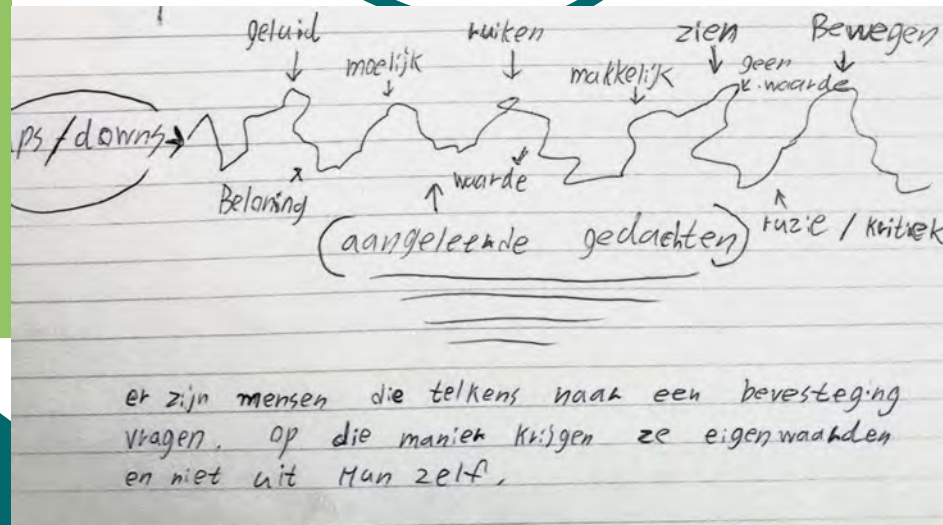 geluid ruiken zien Bewegen
moelijk makkelijk geen
k. waarde
ps/downs
Beloning waarde
(aangeleerde gedachten) ruzie / kritiek
er zijn mensen die telkens naar een bevesteging
vragen. op die manier krijgen ze eigenwaarden
en niet uit Hun zelf.